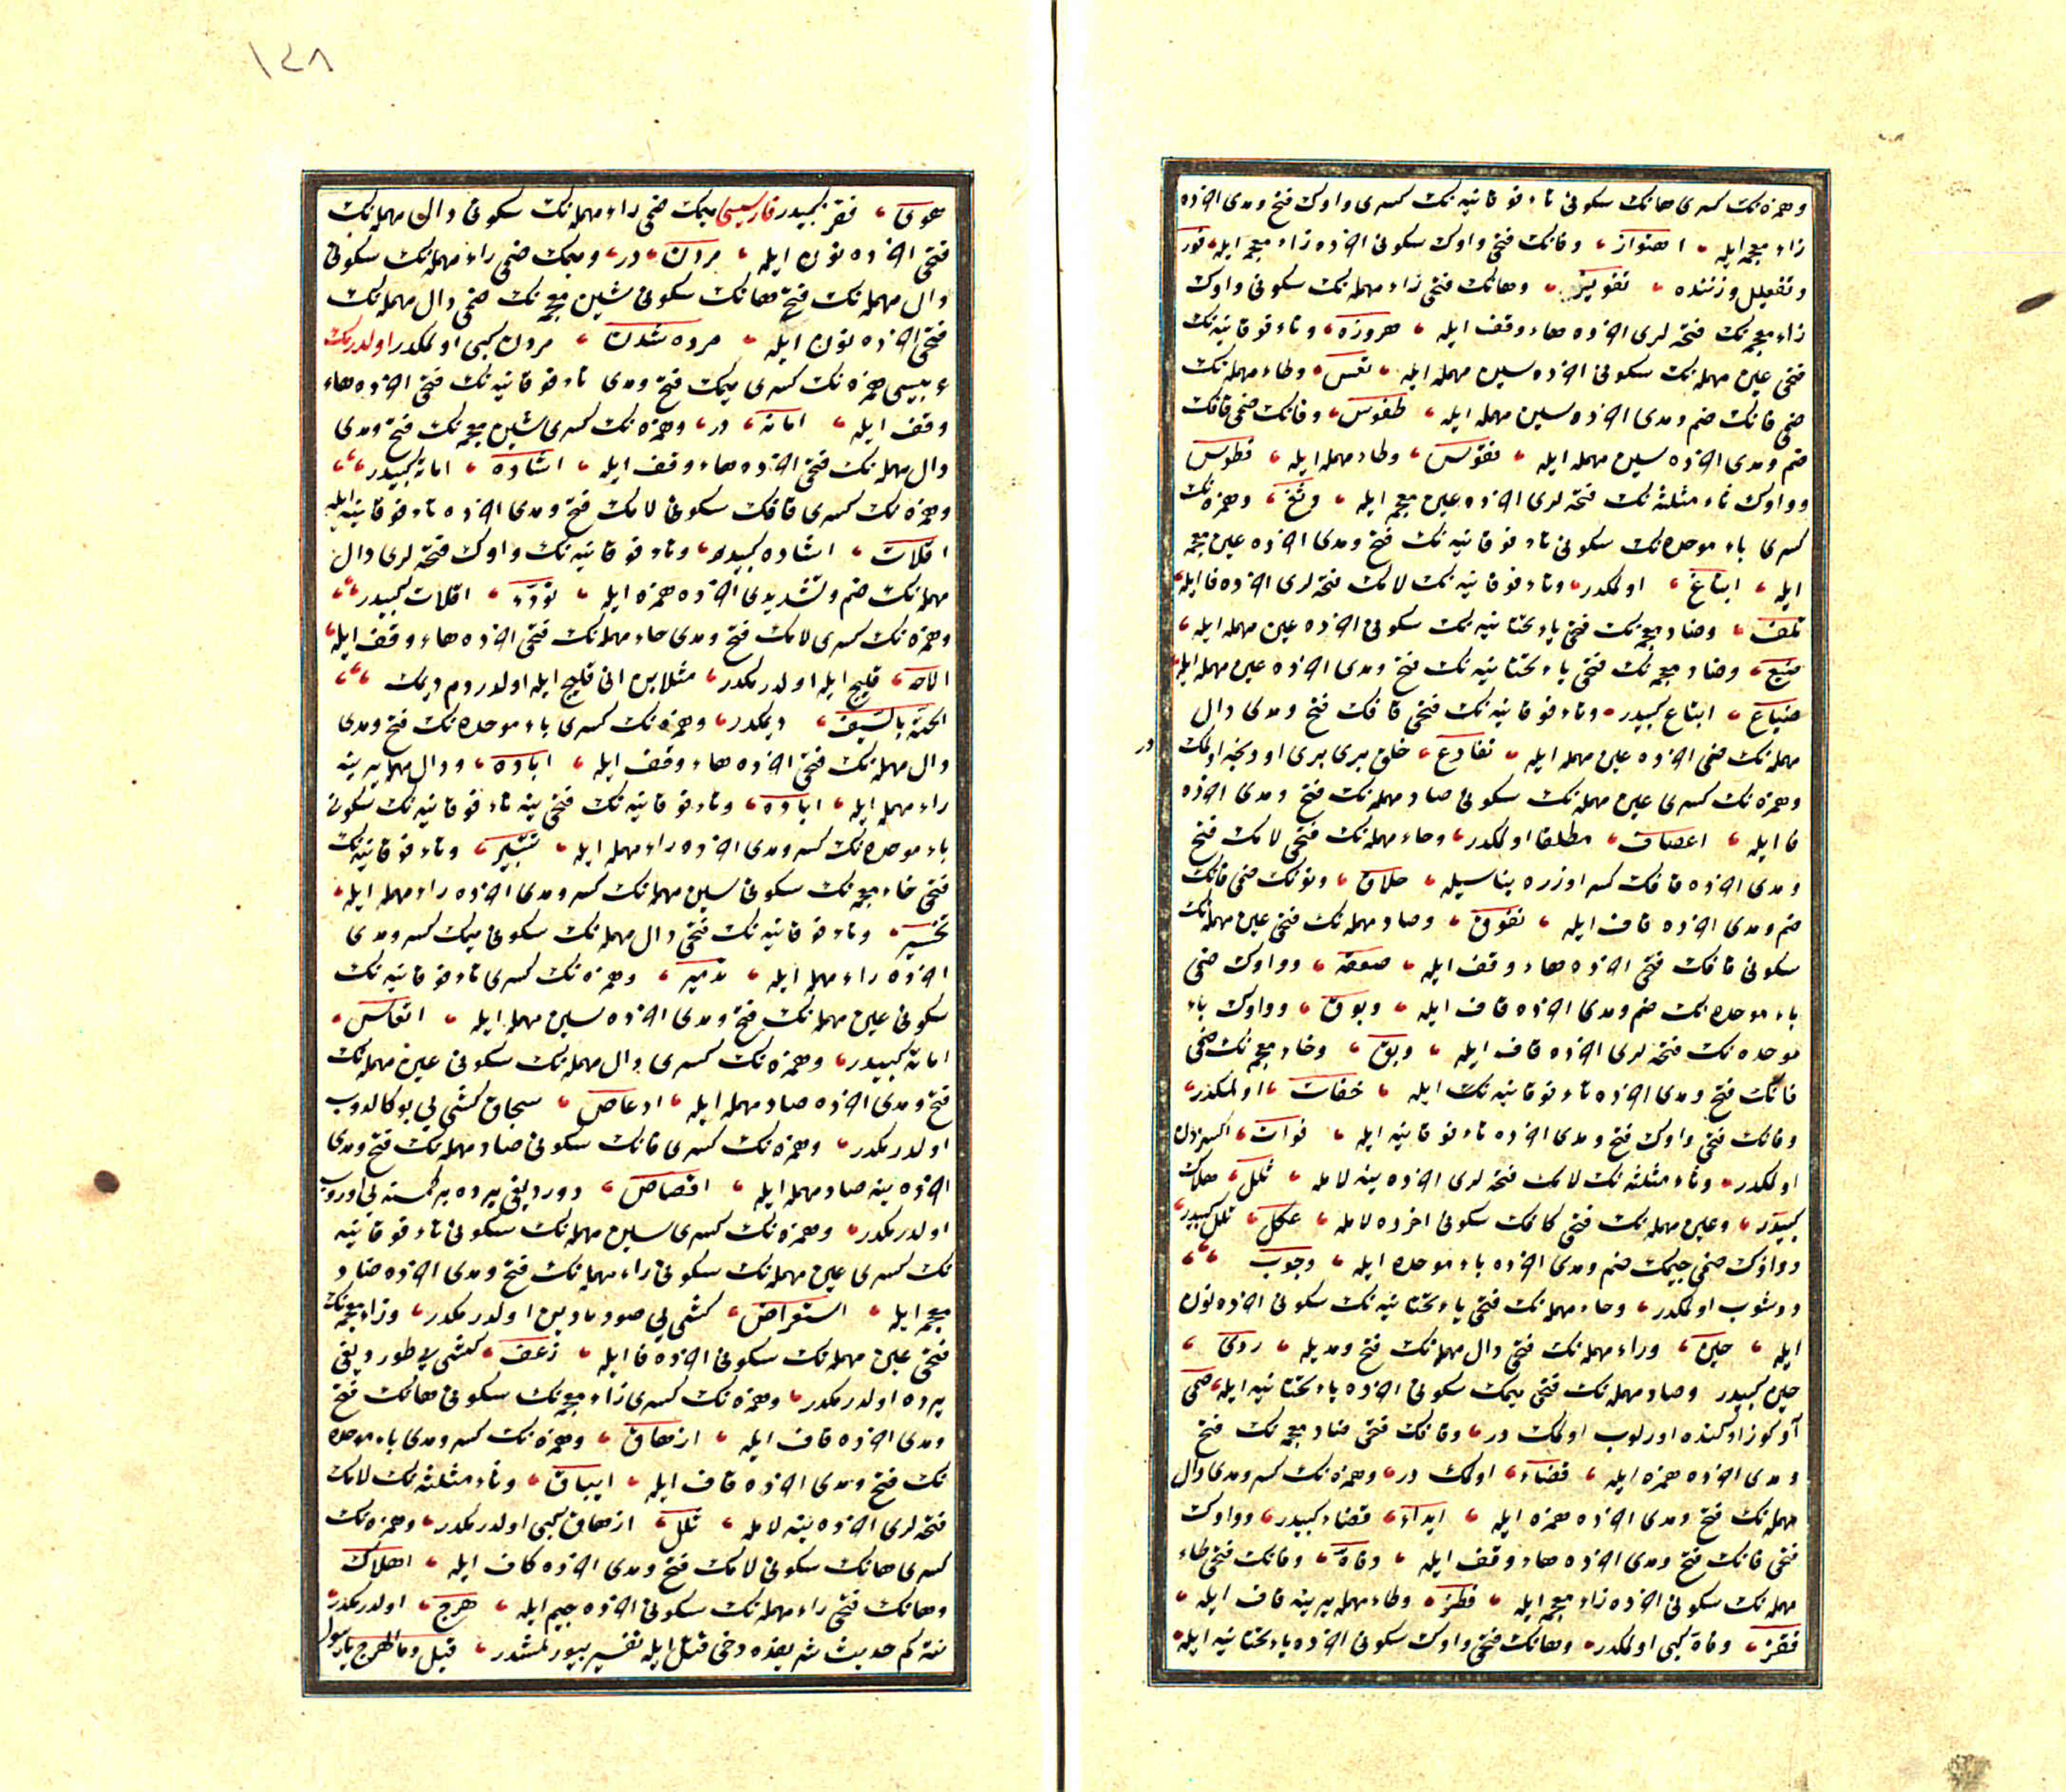 وهمزه‌نك كسرى هانك سكونى تاء فوقانيه‌نك كسرى واوك فتح ومدى اخرنده
زاء معجمه ايله اهتواز وفانك فتحى واوك سكونى اخرنده زاء معجمه ايله فوز
وتفعيل وزننده تفويز وهانك فتحى راء مهمله‌نك سكونى واوك
زاء معجمه‌نك فتحه‌لرى اخرنده هاء وقف ايله هروزه وتاء فوقانيه‌نك
فتحى عين مهمله‌نك سكونى اخرنده سين مهمله ايله تعس وطاء مهمله‌نك
ضمى فانك ضم ومدى اخرنده سين مهمله ايله طفوس وفانك ضمى قافك
ضم ومدى اخرنده سين مهمله ايله فقوس وطاء مهمله ايله فطوس
وواوك تاء مثلثه‌نك فتحه‌لرى اخرنده غين معجمه ايله وثغ وهمزه‌نك
كسرى باء موحده‌نك سكونى تاء فوقانيه‌نك فتح ومدى اخرنده غين معجمه
ايله ابتاغ اولمكدر وتاء فوقانيه‌نك لامك فتحه‌لرى اخرنده فا ايله
تلف وضاد معجمه‌نك فتحى ياء تحتانيه‌نك سكونى اخرنده عين مهمله ايله
ضيع وضاد معجمه‌نك فتحى ياء تحتانيه‌نك فتح ومدى اخرنده عين مهمله ايله
ضياع ابتاع كبيدر وتاء فوقانيه‌نك فتحى قافك فتح ومدى دال
مهمله‌نك ضمى اخرنده عين مهمله ايله تقادع خلق برى برى اردنجه اولمك در
وهمزه‌نك كسرى عين مهمله‌نك سكونى صاد مهمله‌نك فتح ومدى اخرنده
فا ايله اعصاف مطلقا اولمكدر وحاء مهمله‌نك فتحى لامك فتح
ومدى اخرنده قافك كسر اوزره بناسيله حلاق ونونك ضمى فانك
ضم ومدى اخرنده قاف ايله نفوق وصاد مهمله‌نك فتحى عين مهمله‌نك
سكونى قافك فتحى اخرنده هاء وقف ايله صعقه وواوك ضمى
باء موحده‌نك ضم ومدى اخرنده قاف ايله وبوق وواوك باء
موحده‌نك فتحه‌لرى اخرنده قاف ايله وبق وخاء معجمه‌نك ضمى
فانك فتح ومدى اخرنده تاء فوقانيه‌نك ايله خفات اولمكدر
وفانك فتحى واوك فتح ومدى اخرنده تاء فوقانيه ايله فوات اكسزدن
اولمكدر وتاء مثلثه‌نك لامك فتحه‌لرى اخرنده ينه لامله ثلل هلاك
كبيدر وعين مهمله‌نك فتحى كافك سكونى اخرنده لامله عكل ثلل كبيدر
وواوك ضمى جيمك ضم ومدى اخرنده باء موحده ايله وجوب
دوشوب اولمكدر وحاء مهمله‌نك فتحى ياء تحتانيه‌نك سكونى اخرنده نون
ايله حين وراء مهمله‌نك فتحى دال مهمله‌نك فتح ومديله ردى
حين كبيدر وصاد مهمله‌نك فتحى ميمك سكونى اخرنده ياء تحتانيه ايله صمى
آو كوز اوكنده اورلوب اولمك در وقانك فتحى ضاد معجمه‌نك فتح
ومدى اخرنده همزه ايله قضاء اولمك در وهمزه‌نك كسر ومدى دال
مهمله‌نك فتح ومدى اخرنده همزه ايله ايداء قضاء كبيدر وواوك
فتحى فانك فتح ومدى اخرنده هاء وقف ايله وفاة وفانك فتحى طاء
مهمله‌نك سكونى اخرنده زاء معجمه ايله فطز وطاء مهمله يرينه قاف ايله
فقز وفاة كبى اولمكدر وهانك فتحى واوك سكونى اخرنده ياء تحتانيه ايله
١٤٨
هوى فقز كبيدر فارسيسى ميمك ضمى راء مهمله‌نك سكونى دال مهمله‌نك
فتحى اخرنده نون ايله مردن در وميمك ضمى راء مهمله‌نك سكونى
دال مهمله‌نك فتح هانك سكونى شين معجمه‌نك ضمى دال مهمله‌نك
فتحى اخرنده نون ايله مرده شدن مردن كبى اولمكدر اولدرمك
عربيسى همزه‌نك كسرى ميمك فتح ومدى تاء فوقانيه‌نك فتحى اخرنده هاء
وقف ايله اماته در وهمزه‌نك كسرى شين معجمه‌نك فتح ومدى
دال مهمله‌نك فتحى اخرنده هاء وقف ايله اشاده اماته كبيدر
وهمزه‌نك كسرى قافك سكونى لامك فتح ومدى اخرنده تاء فوقانيه ايله
اقلات اشاده كبيدر وتاء فوقانيه‌نك واوك فتحه‌لرى دال
مهمله‌نك ضم وتشديدى اخرنده همزه ايله تودّء اقلات كبيدر
وهمزه‌نك كسرى لامك فتح ومدى حاء مهمله‌نك فتحى اخرنده هاء وقف ايله
الاحه قليج ايله اولدرمكدر مثلا بن انى قليج ايله اولدردم ديمك
الحته بالسيف ديمكدر وهمزه‌نك كسرى باء موحده‌نك فتح ومدى
دال مهمله‌نك فتحى اخرنده هاء وقف ايله اباده ودال مهمله يرينه
راء مهمله ايله اباره وتاء فوقانيه‌نك فتحى ينه تاء فوقانيه‌نك سكونى
باء موحده‌نك كسر ومدى اخرنده راء مهمله ايله تتبير وتاء فوقانيه‌نك
فتحى خاء معجمه‌نك سكونى سين مهمله‌نك كسر ومدى اخرنده راء مهمله ايله
تخسير وتاء فوقانيه‌نك فتحى دال مهمله‌نك سكونى ميمك كسر ومدى
اخرنده راء مهمله ايله تدمير وهمزه‌نك كسرى تاء فوقانيه‌نك
سكونى عين مهمله‌نك فتح ومدى اخرنده سين مهمله ايله اتعاس
اماته كبيدر وهمزه‌نك كسرى دال مهمله‌نك سكونى عين مهمله‌نك
فتح ومدى اخرنده صاد مهمله ايله ادعاص سيجاق كشى يى بوكالدوب
اولدرمكدر وهمزه‌نك كسرى قانك سكونى صاد مهمله‌نك فتح ومدى
اخرنده ينه صاد مهمله ايله اقصاص دوردیغى يرده بر كمسنه يى اوروب
اولدرمكدر وهمزه‌نك كسرى سين مهمله‌نك سكونى تاء فوقانيه
نك كسرى عين مهمله‌نك سكونى راء مهمله‌نك فتح ومدى اخرنده ضاد
معجمه ايله استعراض كشى يى صورمادين اولدرمكدر وزاء معجمه‌نك
فتحى عين مهمله‌نك سكونى اخرنده فا ايله زعف كشى يى طوردیغى
يرده اولدرمكدر وهمزه‌نك كسرى زاء معجمه‌نك سكونى هانك فتح
ومدى اخرنده قاف ايله ازهاق وهمزه‌نك كسر ومدى باء موحده
نك فتح ومدى اخرنده قاف ايله ايباق وتاء مثلثه‌نك لامك
فتحه‌لرى اخرنده ينه لامله ثلل ازهاق كبى اولدرمكدر وهمزه‌نك
كسرى هانك سكونى لامك فتح ومدى اخرنده كاف ايله اهلاك
وهانك فتحى راء مهمله‌نك سكونى اخرنده جيم ايله هرج اولدرمكدر
نته كم حديث شريفده دخى قتل ايله تفسير بيورلمشدر قيل وما الهرج يا رسول